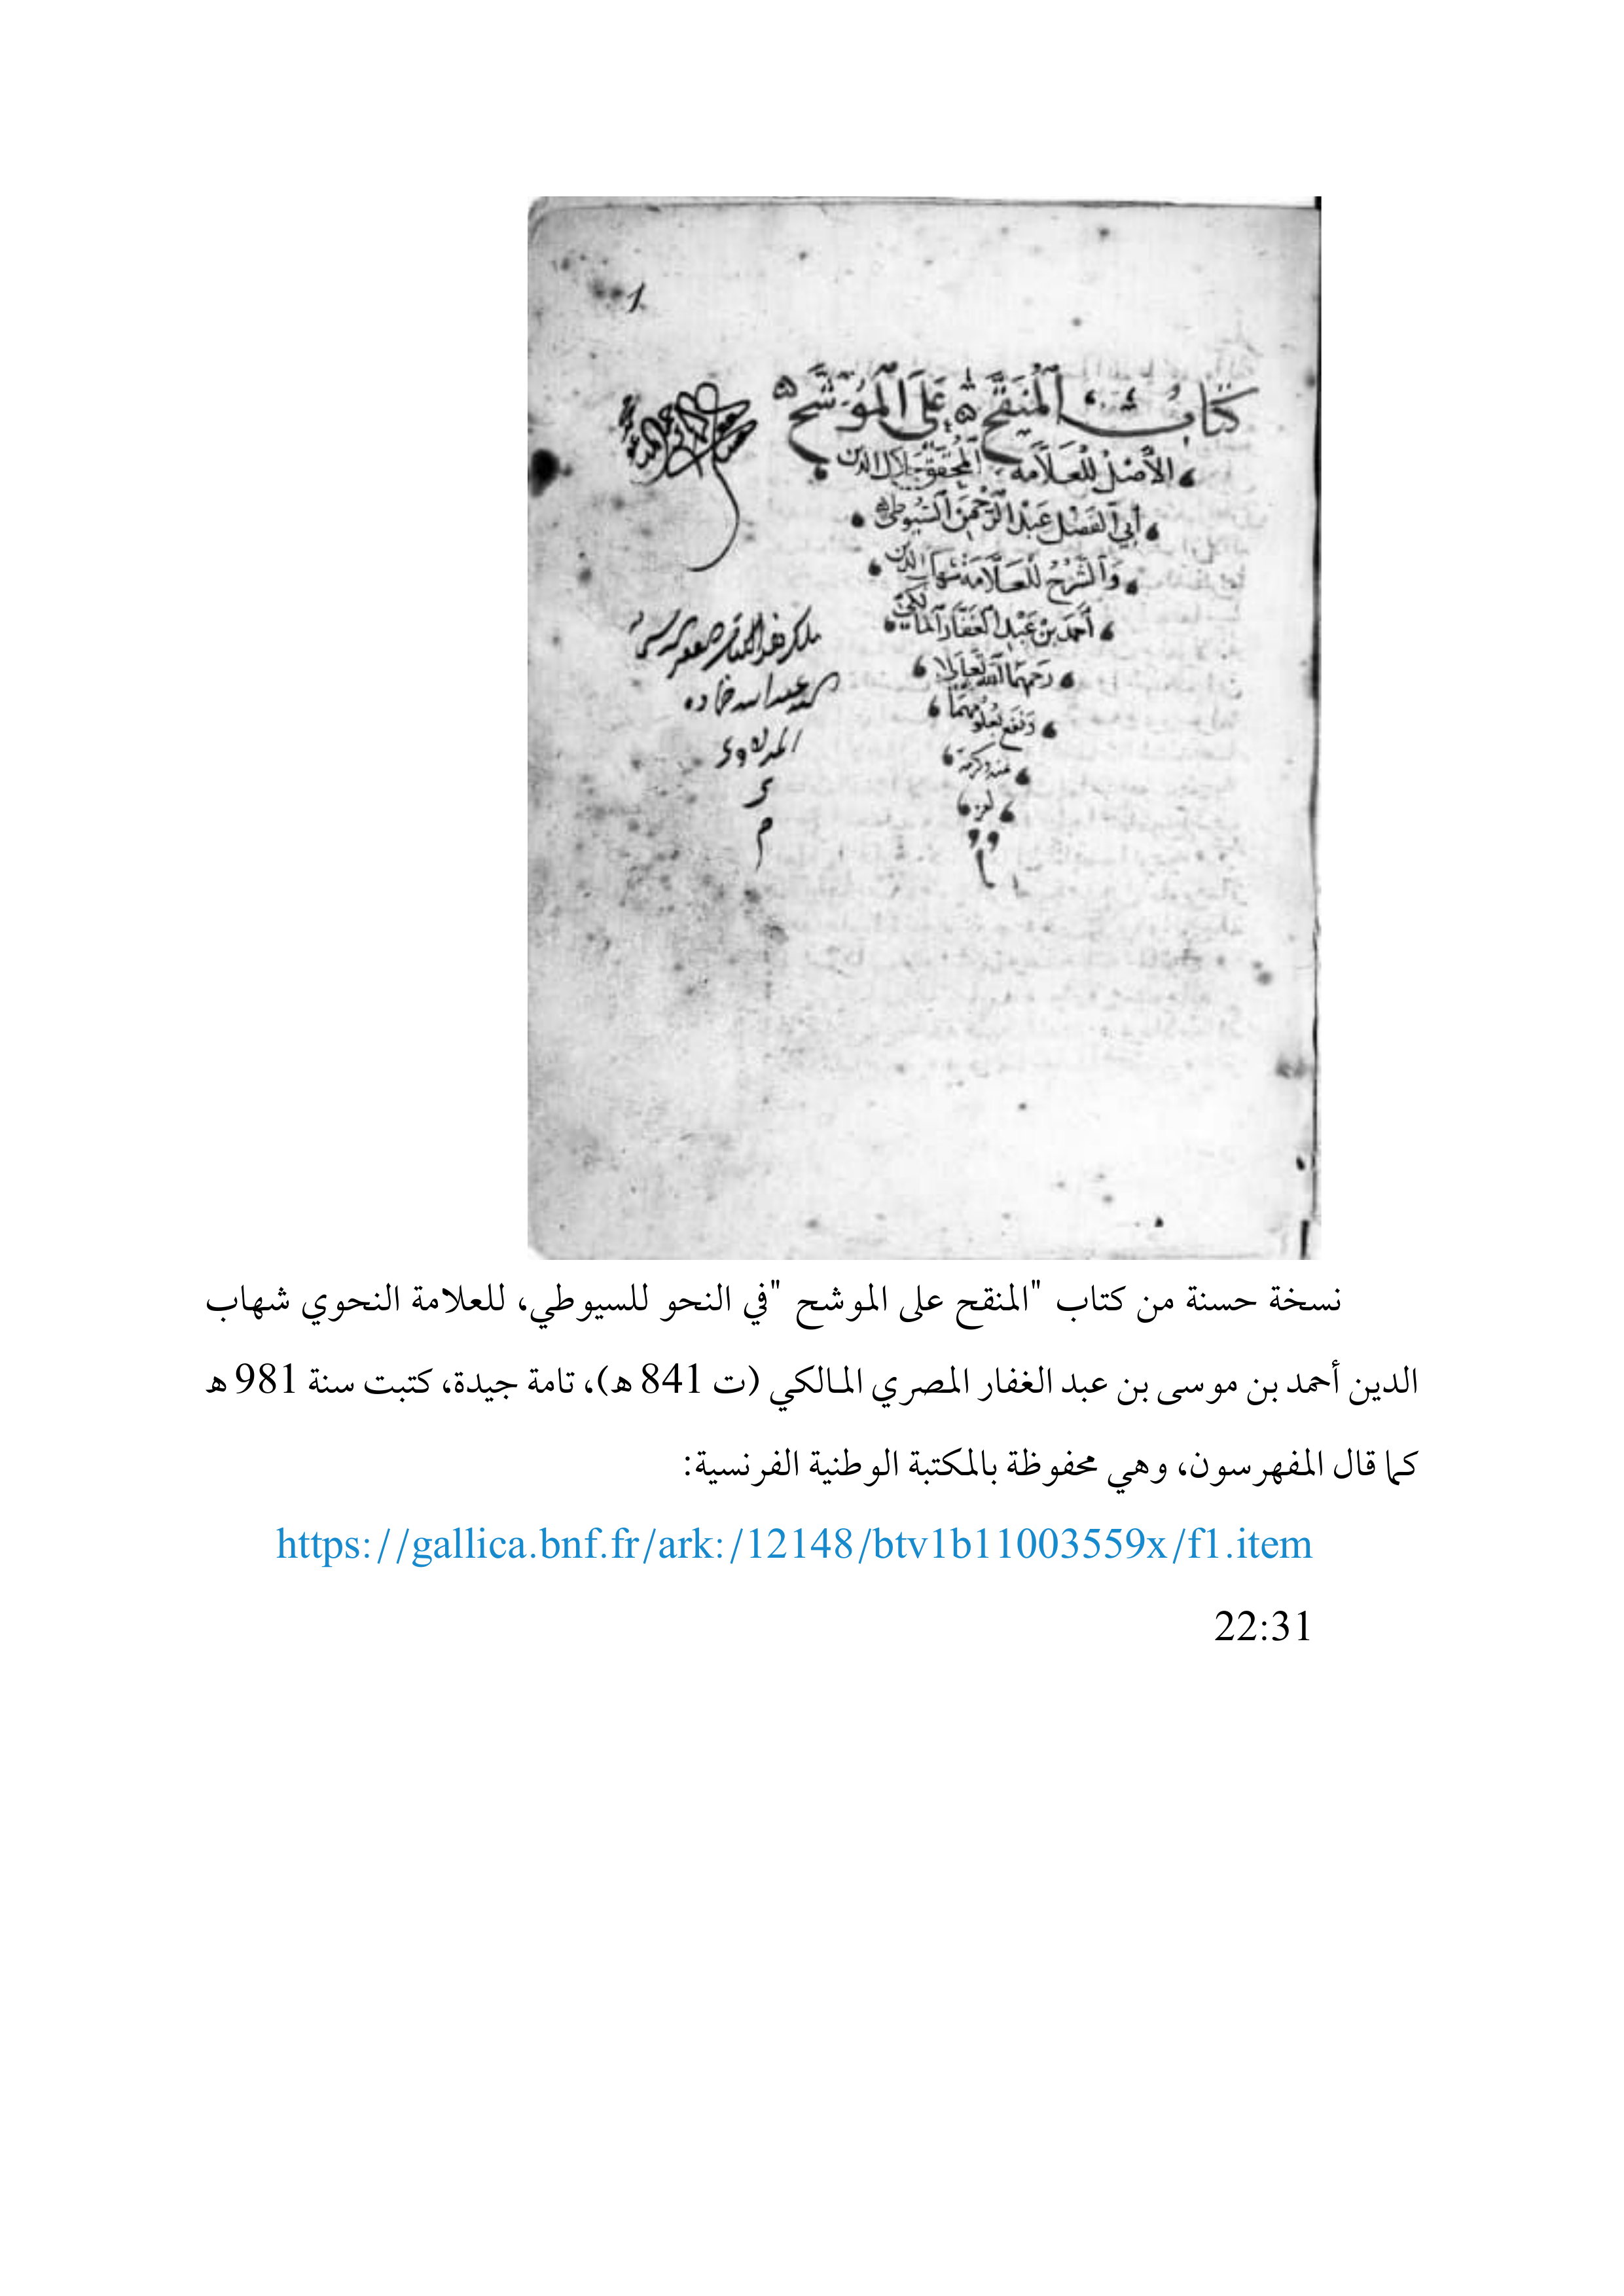 1
كتاب المنقح على الموشح
الأصل للعلامة المحقق جلال الدين
أبي الفضل عبد الرحمن السيوطي
والشرح للعلامة شهاب الدين
أحمد بن عبد الغفار المالكي
رحمهما الله تعالى
ونفع بعلومهما
بمنه وكرمه
ملك هذا الكتاب
عبد الله
نسخة حسنة من كتاب "المنقح على الموشح "في النحو للسيوطي، للعلامة النحوي شهاب
الدين أحمد بن موسى بن عبد الغفار المصري المالكي (ت 841 هـ)، تامة جيدة، كتبت سنة 981 هـ
كما قال المفهرسون، وهي محفوظة بالمكتبة الوطنية الفرنسية:
https://gallica.bnf.fr/ark:/12148/btv1b11003559x/f1.item
22:31